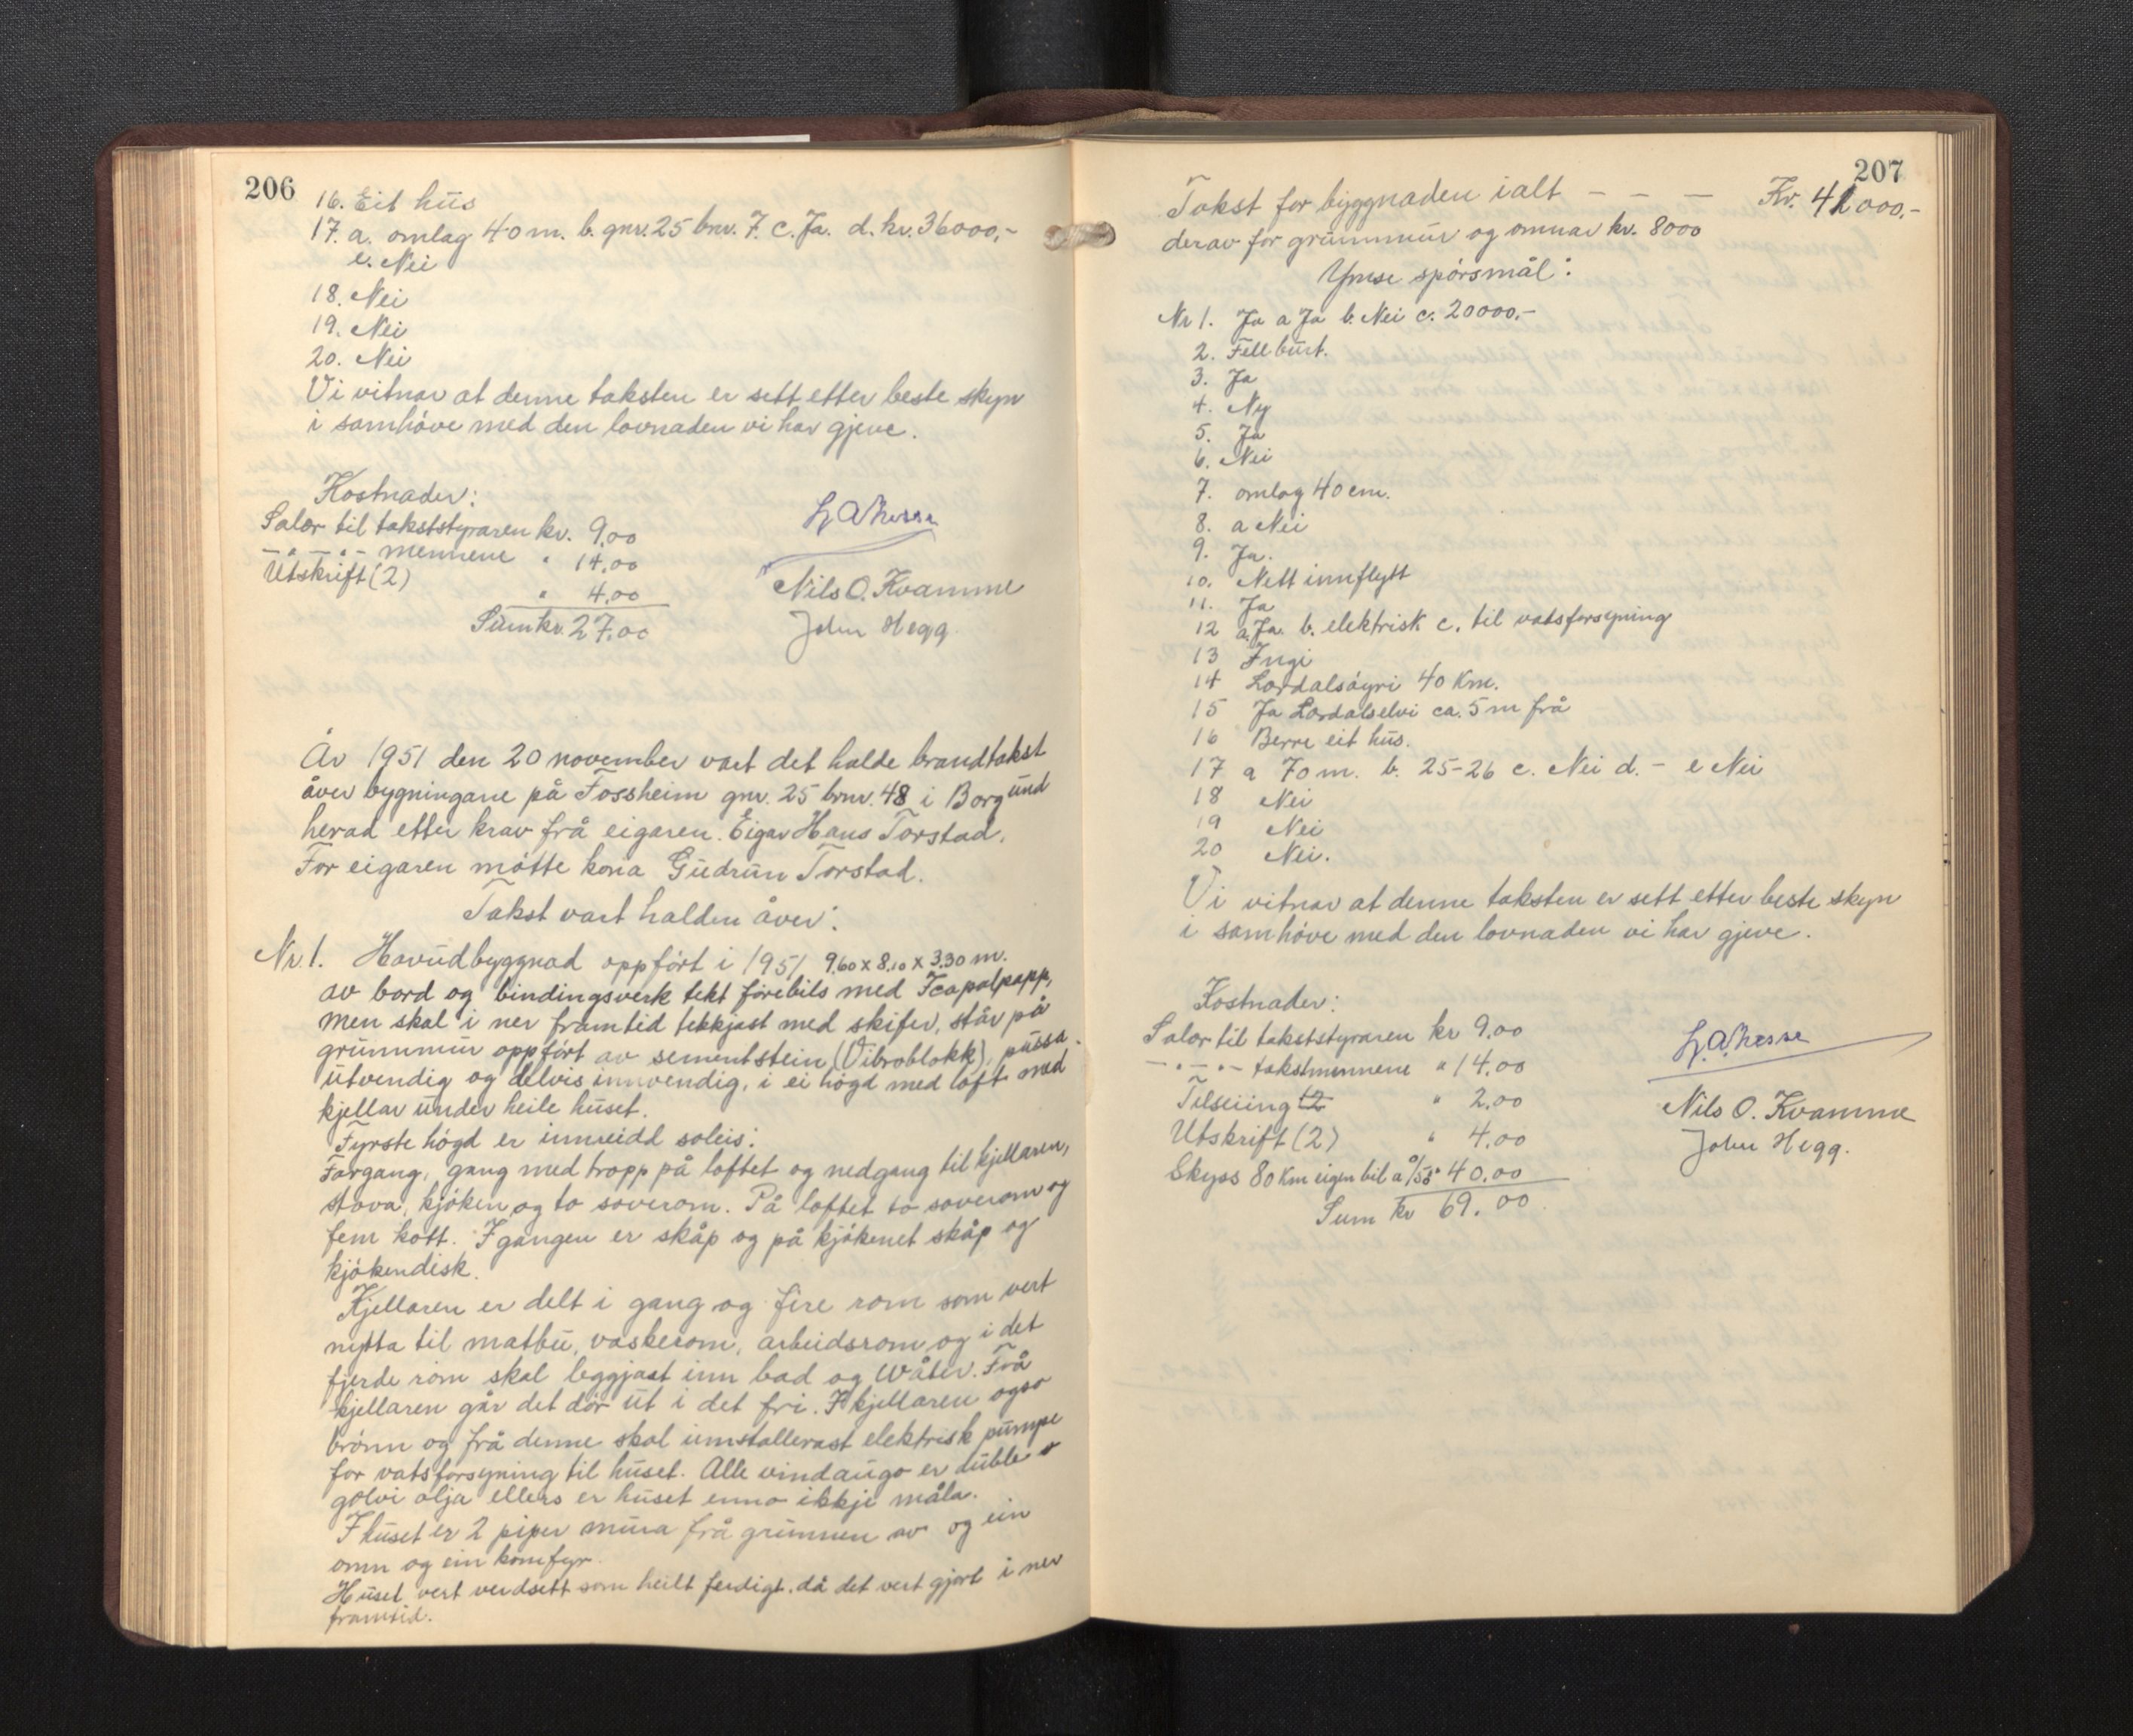 206
16. Eit hus
17. a. omlag 40 m. b. gnr. 25 bnr. 7. c. Ja. d. kr. 36000,-
e. Nei
18. Nei
19. Nei
20. Nei
Vi vitnar at denne taksten er sett etter beste skyn
i samhöve med den lovnaden vi har gjeve.
Kostnader:
Salær til takststyraren kr. 9,00
- " - " - mennene " 14,00
Utskrift (2) " 4,00
Sum kr. 27,00
Nils O. Kvamme
John Hegg.
År 1951 den 20 november vart det halde brandtakst
åver bygningane på Fossheim gnr. 25 bnr. 48 i Borgund
herad etter krav frå eigaren. Eigar Hans Torstad.
For eigaren mötte kona Gudrun Torstad.
Takst vart halden åver:
Nr. 1. Hovudbyggnad oppfört i 1951 9,60 x 8,10 x 3,30 m.
av bord og bindingsverk tekt förebils med Icopalpapp,
men skal i nær framtid tekkjast med skifer, står på
grunnmur oppfört av sementstein (Vibroblokk), pussa
utvendig og delvis innvendig, i ei högd med loft med
kjellar under heile huset.
Fyrste högd er innreidd soleis:
Forgang, gang med tropp på loftet og nedgang til kjellaren,
stova, kjöken og to soverom. På loftet to soverom og
fem kott. I gangen er skåp og på kjökenet skåp og
kjökendisk.
Kjellaren er delt i gang og fire rom som vert
nytta til matbu, vaskerom, arbeidsrom og i det
fjerde rom skal leggjast inn bad og Wåter. Frå
kjellaren går det dör ut i det fri. I kjellaren ogso
brönn og frå denne skal innstallerast elektrisk pumpe
for vatsforsyning til huset. Alle vindaugo er duble
golvi olja ellers er huset enno ikkje måla.
I huset er 2 piper mura frå grunnen av og ein
omn og ein komfyr.
Huset vert verdsett som heilt ferdigt, då det vert gjort i nær
framtid.
207
Takst for byggnaden ialt - - - Kr. 42000,-
derav for grunnmur og omnar kr. 8000
Ymse spörsmål:
Nr 1. Ja a Ja b. Nei c. 20000,-
2. Fell burt.
3. Ja
4. Ny
5. Ja
6. Nei
7. omlag 40 cm.
8. a Nei
9. Ja.
10. Nett innflytt
11. Ja
12 a. Ja. b. elektrisk c. til vatsforsyning
13 Ingi
14 Lærdalsöyri 40 Km.
15 Ja Lærdalselvi ca. 5 m frå
16 Berre eit hus.
17 a 70 m. b. 25-26 c. Nei d. - e Nei
18 Nei
19 Nei
20 Nei.
Vi vitnar at denne taksten er sett etter beste skyn
i samhöve med den lovnaden vi har gjeve.
Kostnader:
Salær til takststyraren kr 9,00
- " - " - takstmennene " 14,00
Tilseiing " 2,00
Utskrift (2) " 4,00
Skyss 80 Km eigen bil à 0/50 " 40,00
Sum kr 69.00
Nils O. Kvamme
John Hegg.